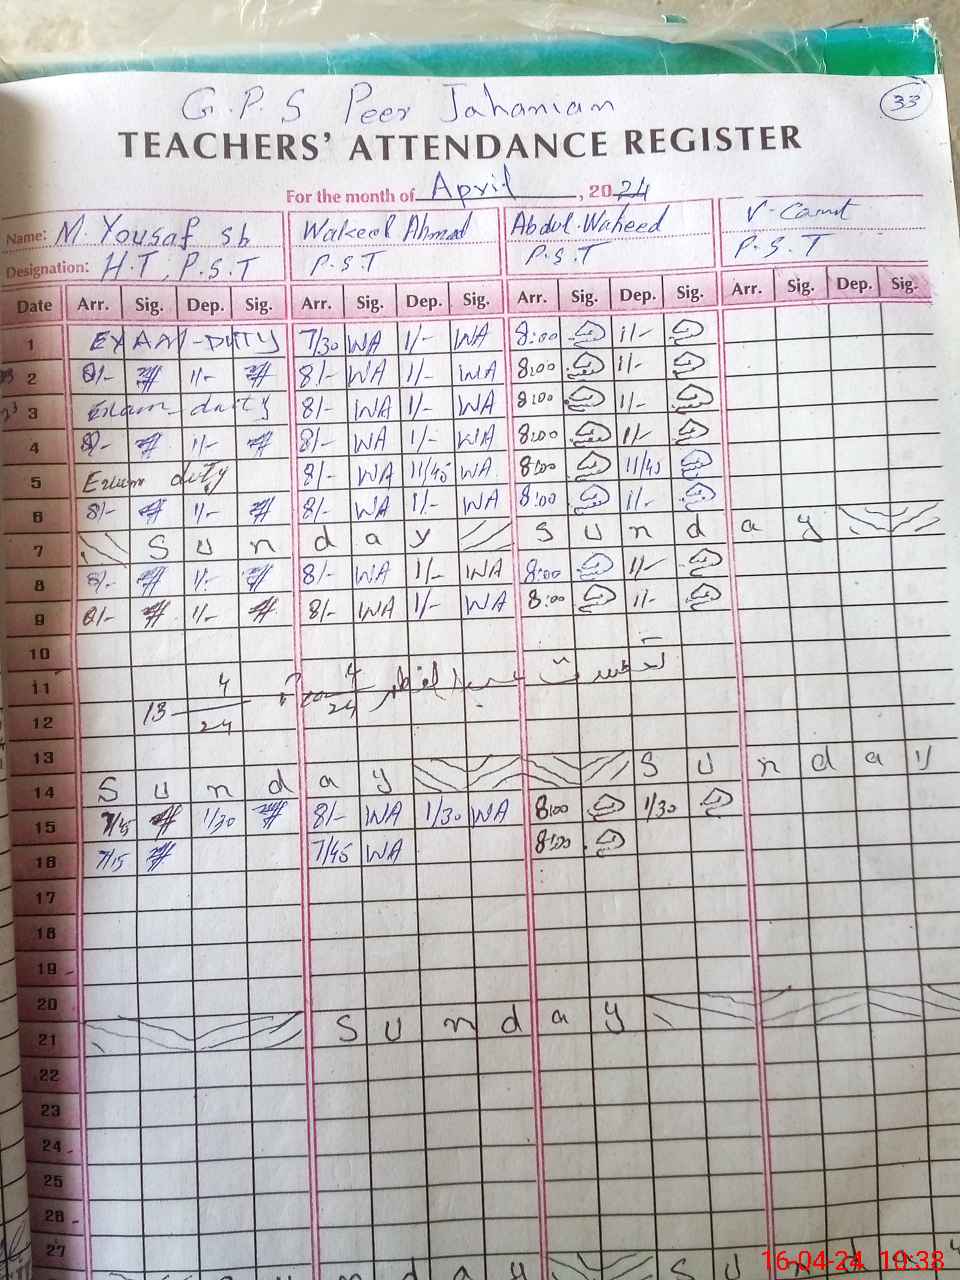 G.P.S Peer Jahanian
33
TEACHERS' ATTENDANCE REGISTER
For the month of April, 2024
Name: M. Yousaf sb Wakeel Ahmad Abdul Waheed
Designation: H.T, P.S.T P.S.T P.S.T P.S.T
Date Arr. Sig. Dep. Sig. Arr. Sig. Dep. Sig. Arr. Sig. Dep. Sig. Arr. Sig. Dep. Sig.
1 EXAM-DUTY 7/30 WA 1/- WA 8:00 1/-
2 8/- 1/- 8/- WA 1/- WA 8:00 1/-
3 Exam duty 8/- WA 1/- WA 8:00 1/-
4 8/- 1/- 8/- WA 1/- WA 8:00 1/-
5 Exam duty 8/- WA 11/45 WA 8:00 11/45
6 8/- 1/- 8/- WA 1/- WA 8:00 1/-
7 Sunday Sunday
8 8/- 1/- 8/- WA 1/- WA 8:00 1/-
9 8/- 1/- 8/- WA 1/- WA 8:00 1/-
10
11 4 4
12 13 24 24
13 Sunday
14 Sunday
15 7/45 1/30 8/- WA 1/30 WA 8:00 1/30
16 7/15 7/45 WA 8:00
17
18
19
20
21 Sunday
22
23
24
25
26
27
16-04-24 10:38